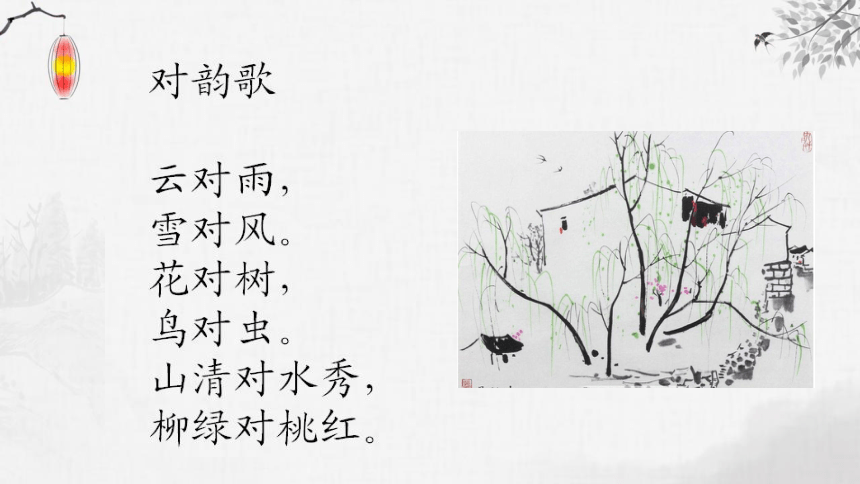 对韵歌
云对雨，
雪对风。
花对树，
鸟对虫。
山清对水秀，
柳绿对桃红。